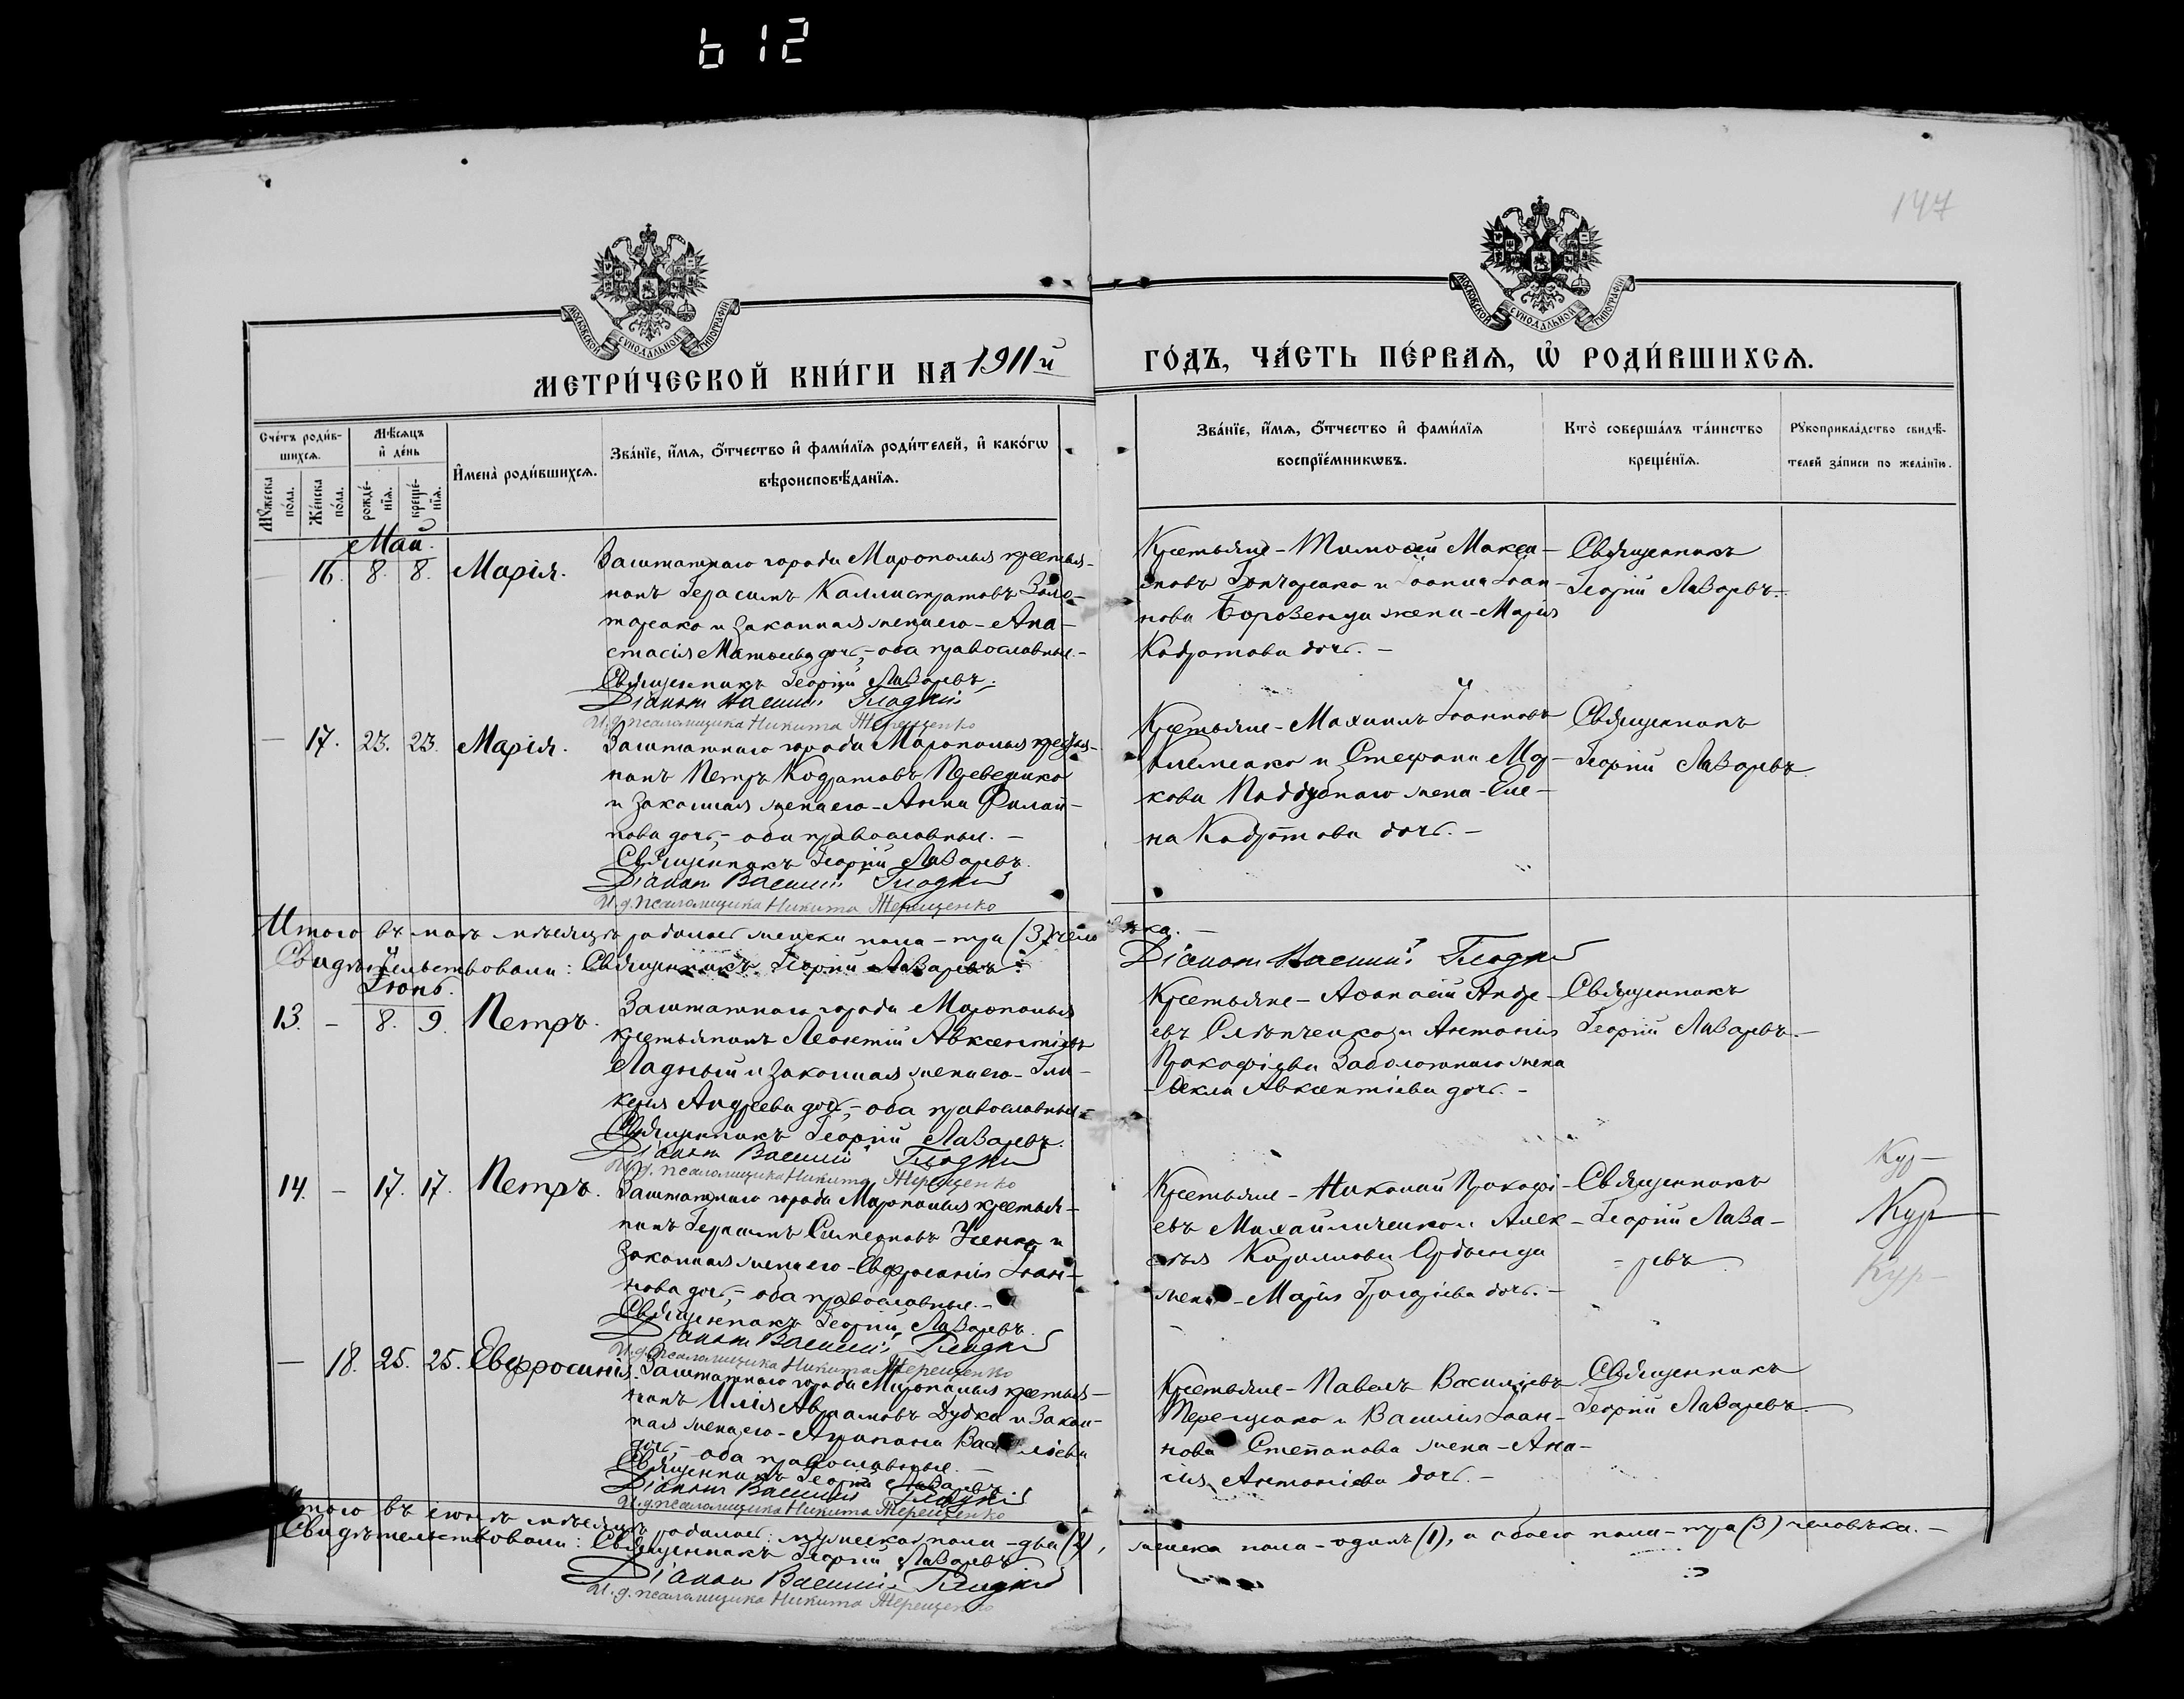 612
147
МОСКОВСКОЙ СѴНОДАЛЬНОЙ ТИПОГРАФІИ
МОСКОВСКОЙ СѴНОДАЛЬНОЙ ТИПОГРАФІИ
МЕТРИ́ЧЕСКОЙ КНИ́ГИ НА 1911й
ГО́ДЪ, ЧА́СТЬ ПЕ́РВАѦ, Ѡ҆ РОДИ́ВШИХСѦ.
Сче́тъ роди́в-
шихсѧ.
Мѣ́сѧцъ
и҆ де́нь
И҆мена̀ роди́вшихсѧ.
Зва́нїе, и҆́мѧ, ѻ҆́тчество и҆ фами́лїѧ роди́телей, и҆ како́гѡ
вѣроисповѣ́данїѧ.
Мꙋ́жеска по́ла.
Же́нска по́ла.
рожде́-
нїѧ.
креще́-
нїѧ.
Зва́нїе, и҆́мѧ, ѻ҆́тчество и҆ фами́лїѧ
воспрїе́мникѡвъ.
Кто̀ соверша́лъ та́инство
креще́нїѧ.
Рꙋкоприкла́дство свидѣ́-
телей за́писи по жела́нїю.
Май.
16. 8. 8. Марія.
Заштатнаго города Мирополья крестья-
нинъ Герасимъ Каллистратовъ
и законная жена его - Ана-
стасія дочь, - оба православные. -
Священникъ Георгій Лазаревъ.
Діаконъ Василій Гладкій
И. д. псаломщика Никита Терещенко
Крестьяне - Тимофей Макси-
мовъ Гончаренко и Іоанна Іоан-
нова жена - Марія
Кодратова дочь. -
Священникъ
Георгій Лазаревъ. -
17. 23. 23. Марія.
Заштатнаго города Мирополья крестья-
нинъ Петръ Кодратовъ
и законная жена его - Анна Филип-
пова дочь, - оба православные. -
Священникъ Георгій Лазаревъ.
Діаконъ Василій Гладкій
И. д. псаломщика Никита Терещенко
Крестьяне - Михаилъ Іоанновъ
и Стефана Мар-
кова Поддубнаго жена - Еле-
на Кодратова дочь. -
Священникъ
Георгій Лазаревъ
Итого въ маѣ мѣсяцѣ родилось женска пола - три (3) чело
вѣка. -
Свидѣтельствовали: Священникъ Георгій Лазаревъ.
Діаконъ Василій Гладкій
Іюнь.
13. - 8. 9. Петръ.
Заштатнаго города Мирополья
крестьянинъ Леонтій Авксентіевъ
Ладный и законная жена его - Гли-
керія Андреева дочь, - оба православные. -
Священникъ Георгій Лазаревъ.
Діаконъ Василій Гладкій
И. д. псаломщика Никита Терещенко
Крестьяне - Аѳанасій Андре-
евъ Слѣпченко и Антонія
Прокофіева Заболотнаго жена
- Ѳекла Авксентіева дочь. -
Священникъ
Георгій Лазаревъ. -
14. - 17. 17. Петръ.
Заштатнаго города Мирополья крестья-
нинъ Герасимъ Симеоновъ Усенко и
законная жена его - Евфросинія Іоан-
нова дочь, - оба православные. -
Священникъ Георгій Лазаревъ
Діаконъ Василій Гладкій
И. д. псаломщика Никита Терещенко
Крестьяне - Николай Прокофі-
евъ Михайличенко и Алек-
сѣя Кириллова
жена - Марія Григоріева дочь. -
Священникъ
Георгій Лаза-
ревъ
Кур
Кур
Кур
18. 25. 25. Евфросинія.
Заштатнаго города Мирополья крестья-
нинъ Илія Авраамовъ Дудка и закон-
ная жена его - Васильева
дочь, - оба православные. -
Священникъ Георгій Лазаревъ
Діаконъ Василій Гладкій
И. д. псаломщика Никита Терещенко
Крестьяне - Павелъ Василіевъ
Терещенко и Василія Іоан-
нова Степанова жена -
Антоніева дочь. -
Священникъ
Георгій Лазаревъ
Итого въ іюнѣ мѣсяцѣ родилось: мужеска пола - два (2),
женска пола - одинъ (1), а обоего пола - три (3) человѣка. -
Свидѣтельствовали: Священникъ Георгій Лазаревъ
Діаконъ Василій Гладкій
И. д. псаломщика Никита Терещенко